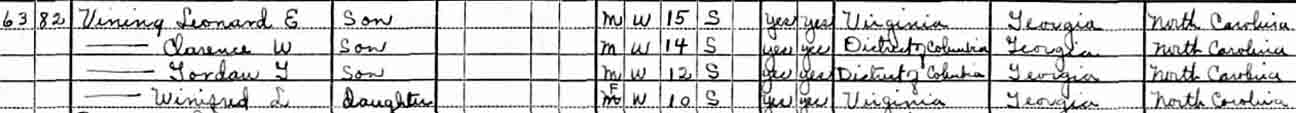 63 82 Vining Leonard E Son M W 15 S yes yes Virginia Georgia North Carolina
—— Clarence W Son M W 14 S yes yes District of Columbia Georgia North Carolina
—— Jordan T Son M W 12 S yes yes District of Columbia Georgia North Carolina
—— Winifred L Daughter F W 10 S yes yes Virginia Georgia North Carolina